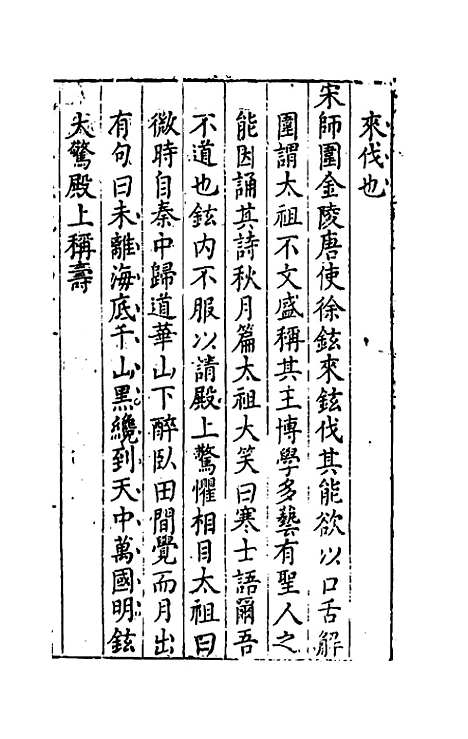 來伐也
宋師圍金陵唐使徐鉉來鉉伐其能欲以口舌解
圍謂太祖不文盛稱其主博學多藝有聖人之
能因誦其詩秋月篇太祖大笑曰寒士語爾吾
不道也鉉内不服以請殿上驚懼相目太祖曰
微時自秦中歸道華山下醉臥田間覺而月出
有句曰未離海底千山黒纔到天中萬國明鉉
大驚殿上稱壽